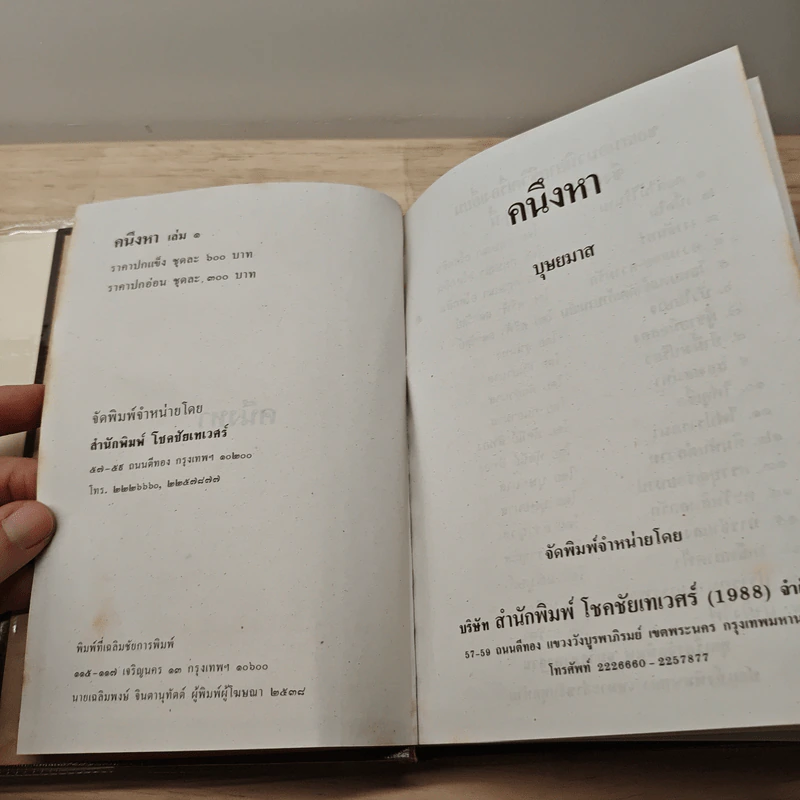 คนึงหา เล่ม ๑
ราคาปกแข็ง ชุดละ ๖๐๐ บาท
ราคาปกอ่อน ชุดละ ๓๐๐ บาท
จัดพิมพ์จำหน่ายโดย
สำนักพิมพ์ โชคชัยเทเวศร์
๕๗-๕๙ ถนนตีทอง กรุงเทพฯ ๑๐๒๐๐
โทร. ๒๒๒๖๖๖๐, ๒๒๕๗๘๗๗
พิมพ์ที่เฉลิมชัยการพิมพ์
๑๑๕-๑๑๗ เจริญนคร ๑๓ กรุงเทพฯ ๑๐๖๐๐
นายเฉลิมพงษ์ จินดานุทัตต์ ผู้พิมพ์ผู้โฆษณา ๒๕๓๘
คนึงหา
บุษยมาส
จัดพิมพ์จำหน่ายโดย
บริษัท สำนักพิมพ์ โชคชัยเทเวศร์ (1988)
57-59 ถนนตีทอง แขวงวังบูรพาภิรมย์ เขตพระนคร กรุงเทพมหาน
โทรศัพท์ 2226660-2257877